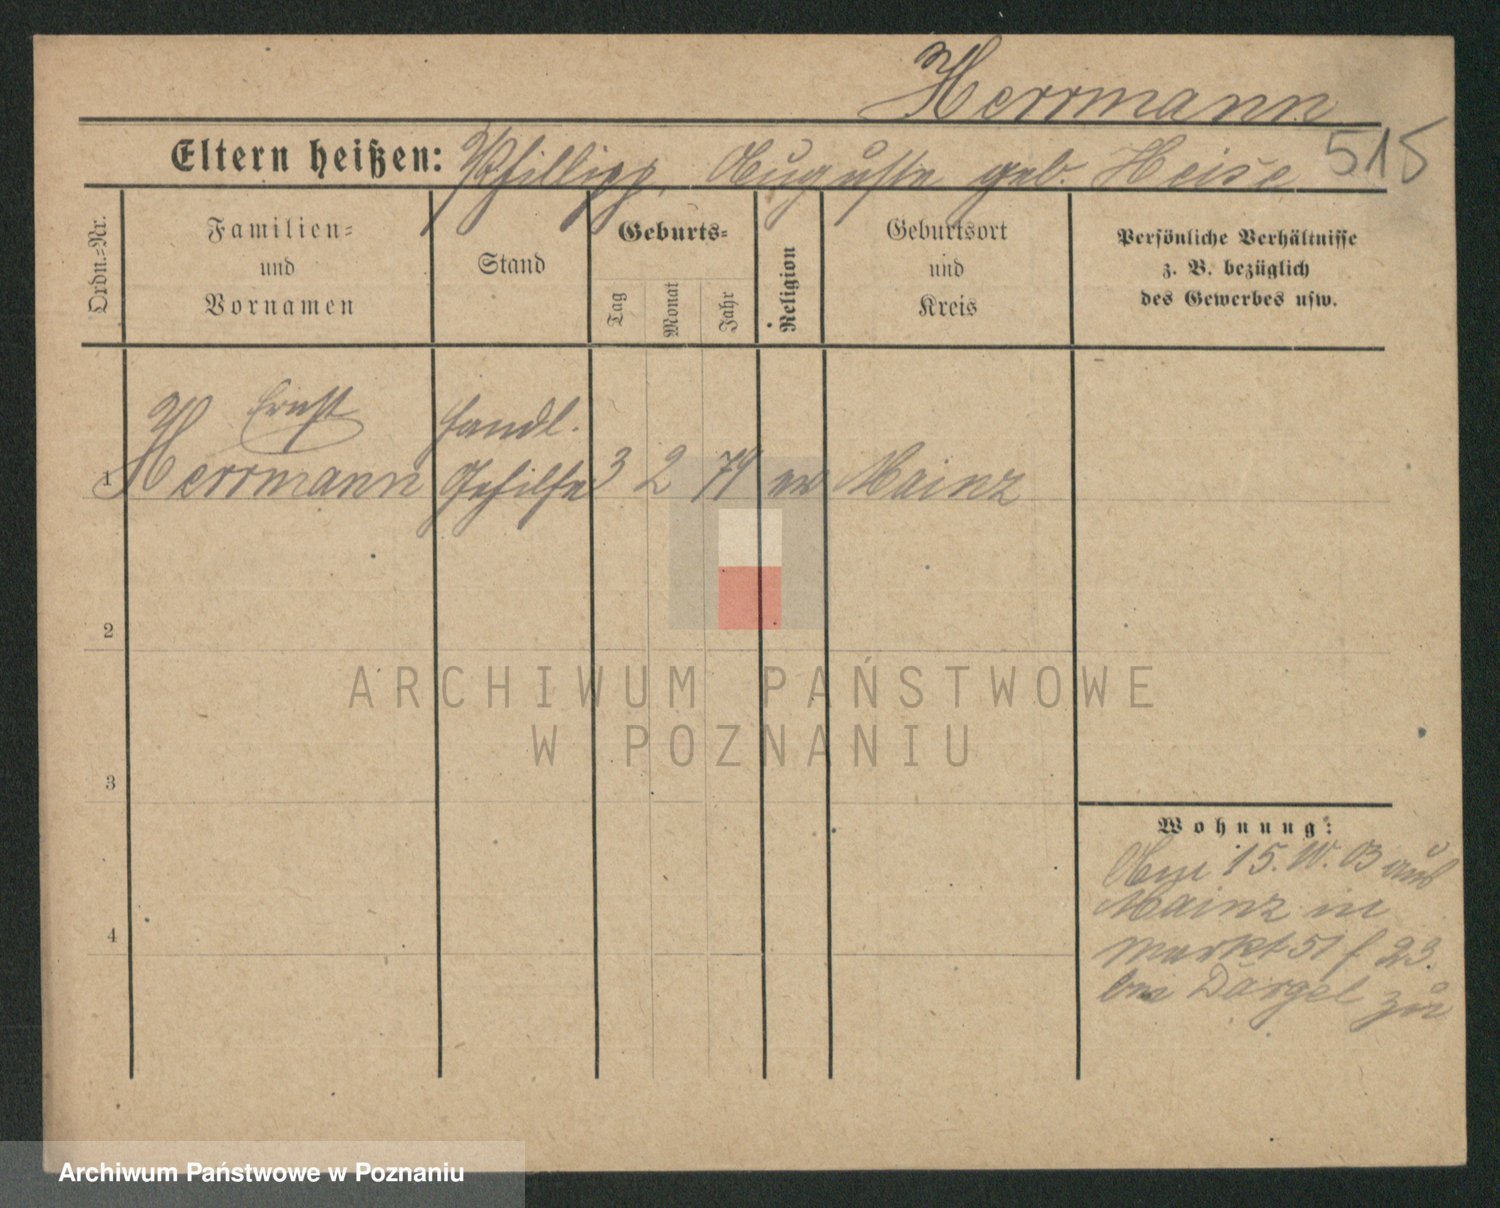 Herrmann
Eltern heißen: Phillipp, Auguste geb. Heise 515
Ordn.=Nr.
Familien=
und
Vornamen
Stand
Geburts=
Tag
Monat
Jahr
Religion
Geburtsort
und
Kreis
Persönliche Verhältnisse
z. B. bezüglich
des Gewerbes usw.
Ernst Handl.
1 Herrmann Gehilfe 3 2 79 ev Mainz
2
ARCHIWUM PAŃSTWOWE
W POZNANIU
3
Wohnung:
15. IV. 03 aus
Mainz in
Markt 51 f 23.
bei Dargel zu
4
Archiwum Państwowe w Poznaniu